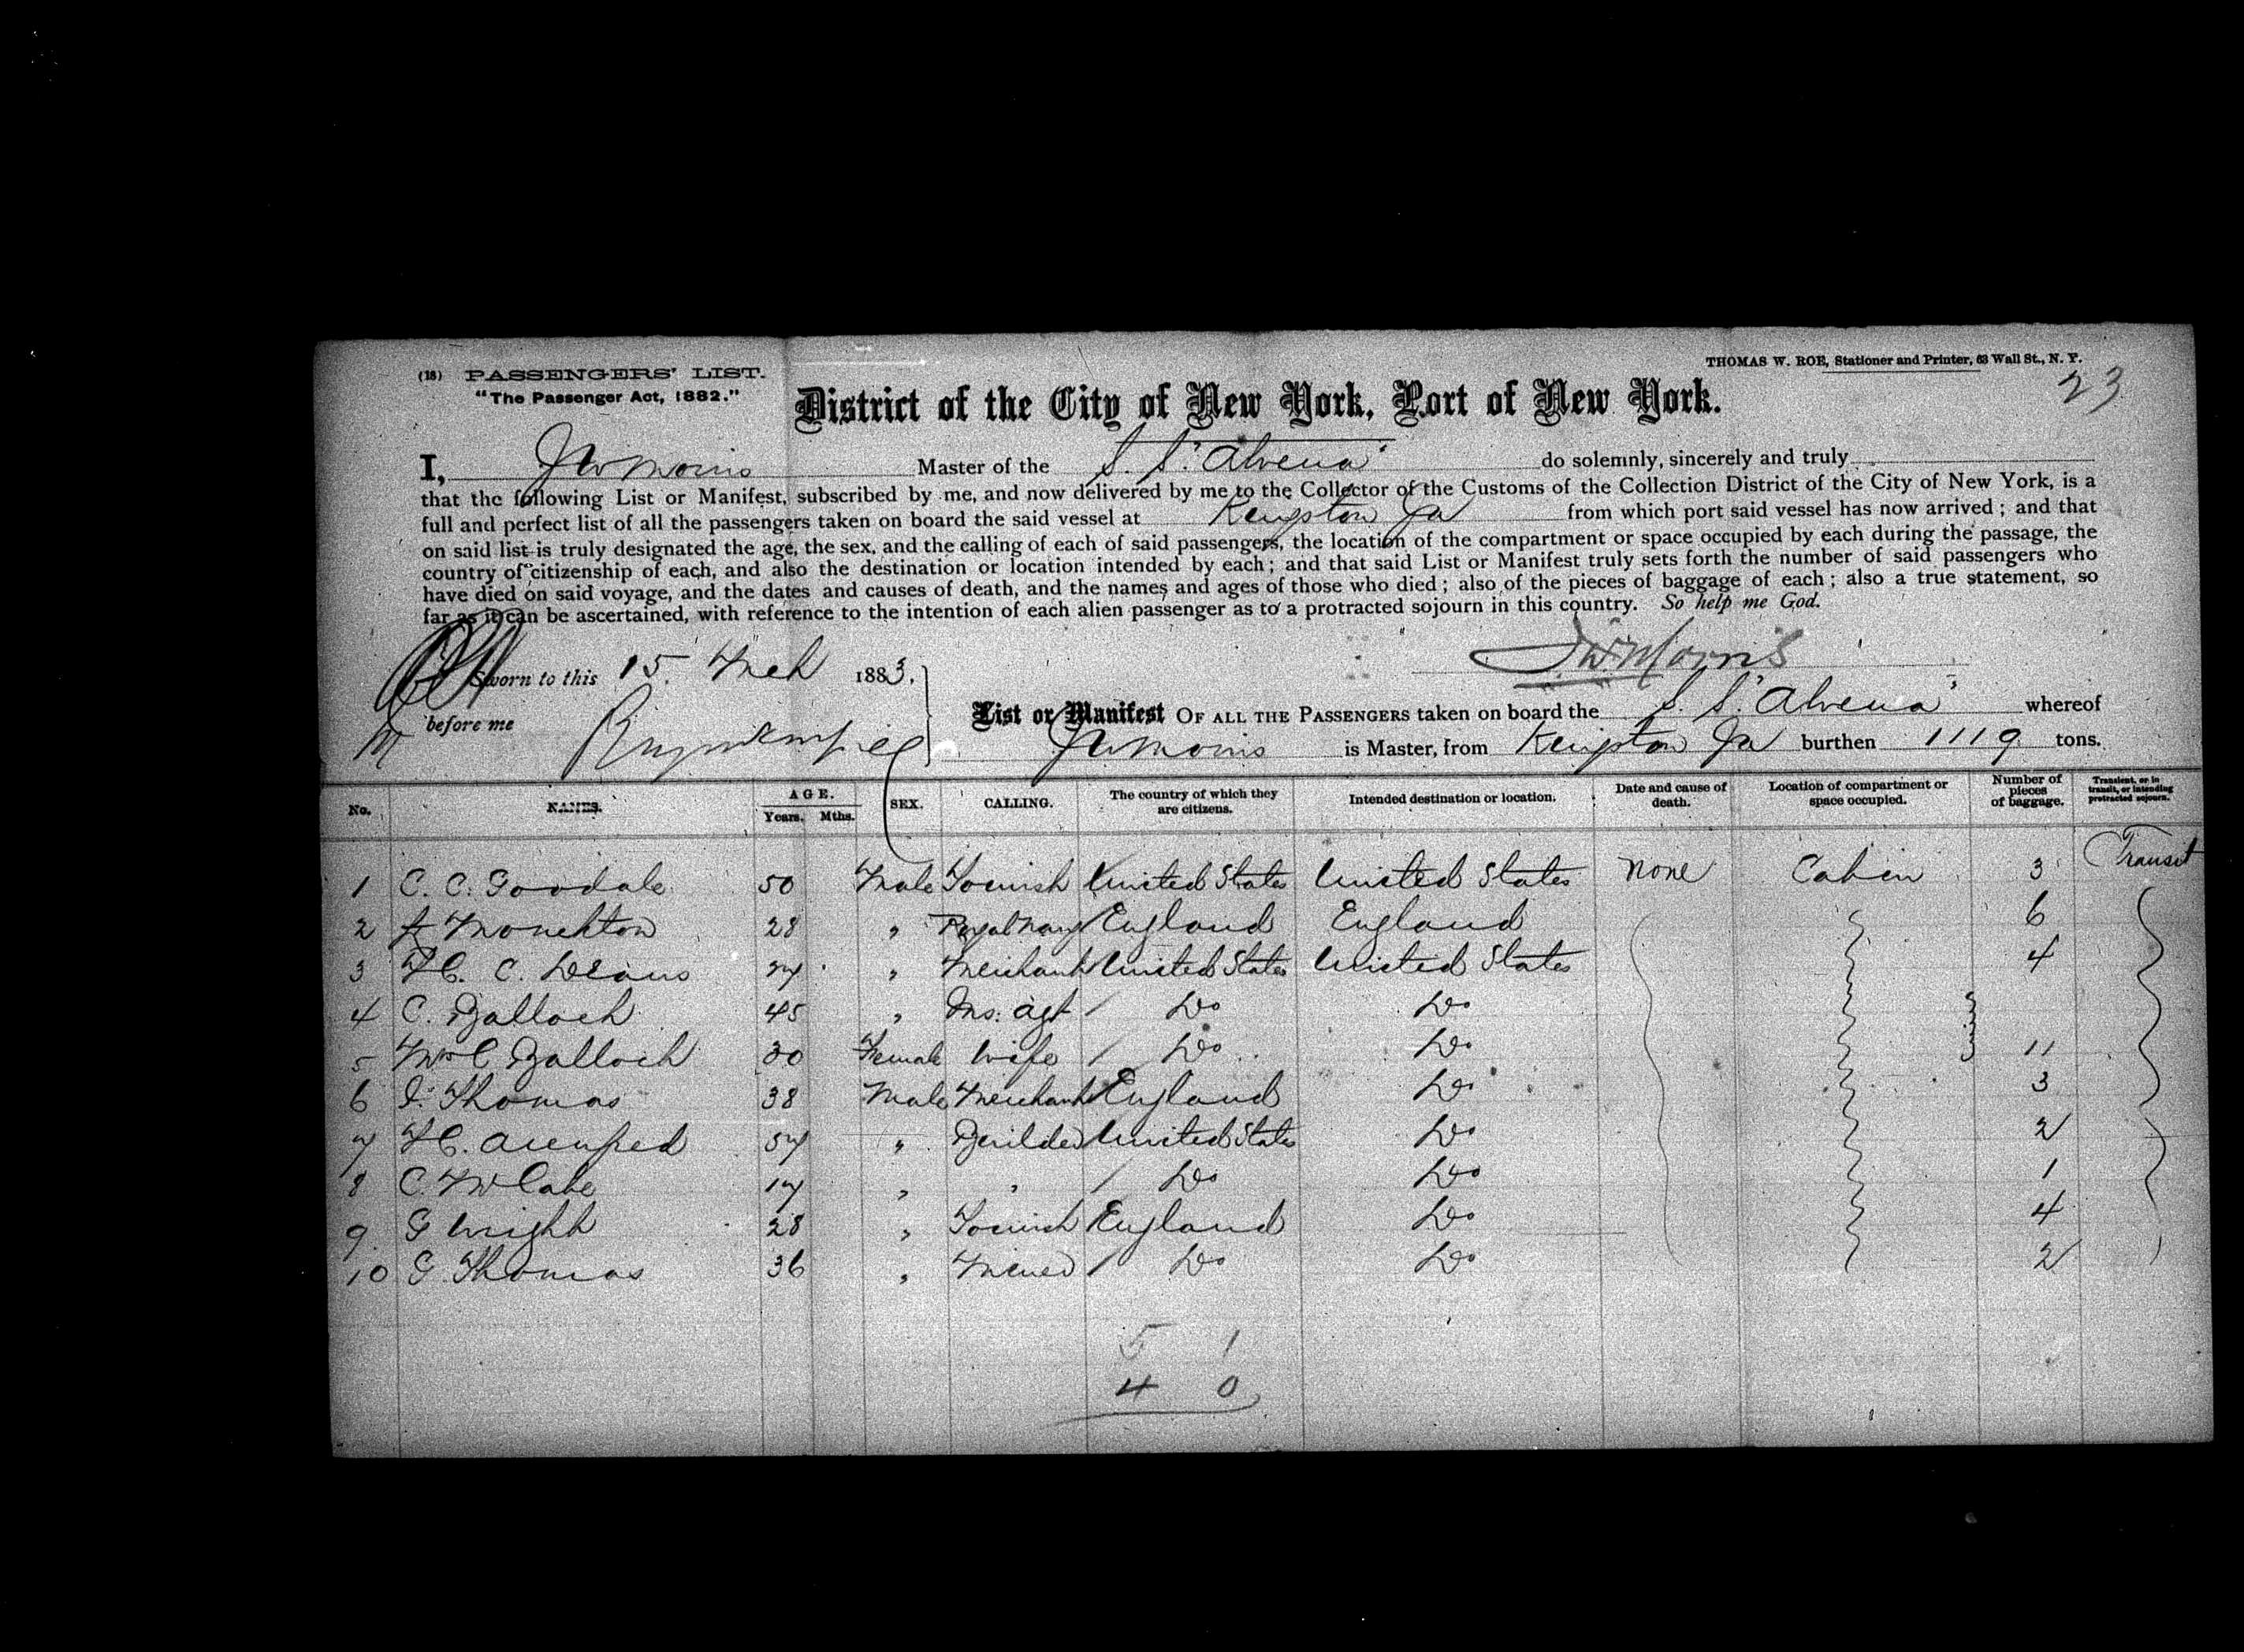 (18) PASSENGERS' LIST.
"The Passenger Act, 1882."
THOMAS W. ROE, Stationer and Printer, 63 Wall St., N. Y.
23
District of the City of New York, Port of New York.
I, J W Morris Master of the S. S. "Alvena" do solemnly, sincerely and truly
that the following List or Manifest, subscribed by me, and now delivered by me to the Collector of the Customs of the Collection District of the City of New York, is a
full and perfect list of all the passengers taken on board the said vessel at Kingston Ja from which port said vessel has now arrived; and that
on said list is truly designated the age, the sex, and the calling of each of said passengers, the location of the compartment or space occupied by each during the passage, the
country of citizenship of each, and also the destination or location intended by each; and that said List or Manifest truly sets forth the number of said passengers who
have died on said voyage, and the dates and causes of death, and the names and ages of those who died; also of the pieces of baggage of each; also a true statement, so
far as it can be ascertained, with reference to the intention of each alien passenger as to a protracted sojourn in this country. So help me God.
J W Morris
Sworn to this 15. Mch 1883.
before me
List or Manifest OF ALL THE PASSENGERS taken on board the S. S. "Alvena" whereof
J W Morris is Master, from Kingston Ja burthen 1119 tons.
No. NAMES. AGE. Years. Mths. SEX. CALLING. The country of which they are citizens. Intended destination or location. Date and cause of death. Location of compartment or space occupied. Number of pieces of baggage. Transient, or in transit, or intending protracted sojourn.
1 C. C. Goodale 50 Male Tourist United States United States None Cabin 3 Transit
2 Monckton 28 " Royal Navy England England 6
3 H. C. Deans 27 " Merchant United States United States 4
4 C. Balloch 45 " Ins. agt Do Do
5 Mrs C Balloch 30 Female Wife Do Do 11
6 Thomas 38 Male Merchant England Do 3
7 H. 57 " Builder United States Do 2
8 C. McCabe 17 " " Do Do 1
9 G Wright 28 " Tourist England Do 4
10 G. Thomas 36 " Miner Do Do 2
5 1
4 0